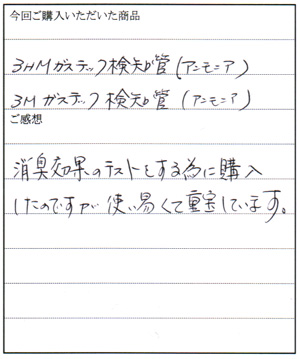 今回ご購入いただいた商品
3HMガステック検知管(アンモニア)
3Mガステック検知管(アンモニア)
ご感想
消臭効果のテストをする為に購入
したのですが使い易くて重宝しています。